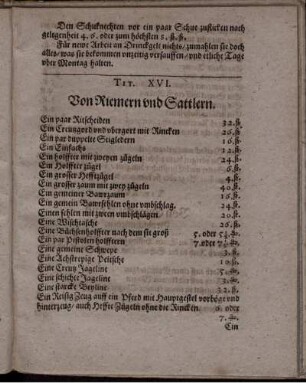 Den Schuknechten vor ein paar Schue zuflicken nach
gelegenheit 4. 6. oder zum höchsten 8. ß.
Für newe Arbeit an Drinckgelt nichts/ zumahlen sie doch
alles/ was sie bekommen unzeitig versauffen/ und etliche Tage
über Montag halten.
TIT. XVI.
Von Riemern vnd Sattlern.
Ein paar Ritscheiden 32. ß.
Ein Creutzgard und übergort mit Rincken 26. ß.
Ein par duppelte Stigledern 16. ß.
Ein Einfachs 12. ß.
Ein holffter mit zweyen zügeln 24. ß.
Ein Holffter zügel 6. ß.
Ein grosser Hefftzügel 4. ß.
Ein grosser zaum mit zwey zügeln 40. ß.
Ein gemeiner Bawrzaum 16. ß.
Ein gemein Bawrsehlen ohne umbschlag. 24. ß.
Einen sehlen mit zween umbschlägen 20. ß.
Eine 26. ß.
Ein Büchsenholffter nach dem sie groß 5. oder
Ein par Pistolen holfftern 7. oder
Eine gemeine Schwepe 3. ß.
Eine Achtstrepige Peitsche 10. ß.
Eine Creutz Jageline 5. ß.
Eine schlichte Jageline 3. ß.
Eine starcke Beyline 32. ß.
Ein Reisig Zeug auff ein Pferd mit Hauptgestel vorbüge und
hinterzeug/ auch Heffte Zügeln ohne die Rincken. 6. oder
7.
Ein